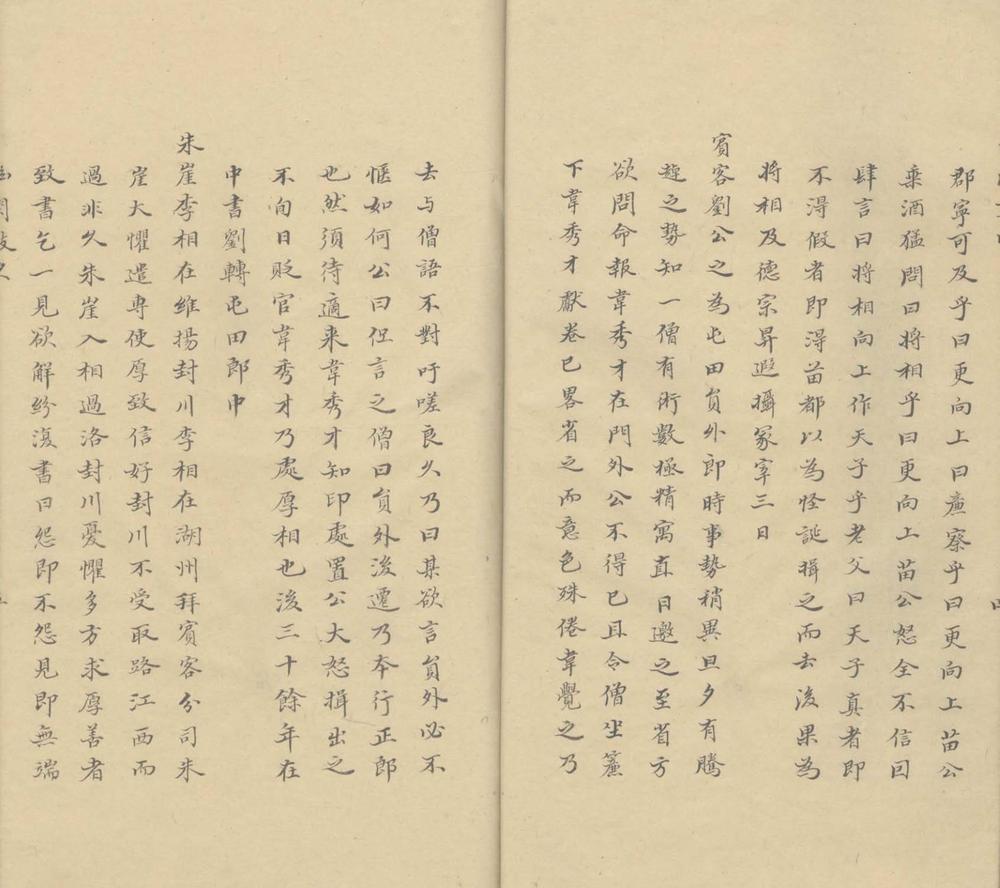 郡寧可及乎曰更向上曰廉察乎曰更向上苗公
乗酒猛問曰將相乎曰更向上苗公怒全不信囙
肆言曰將相向上作天子乎老父曰天子真者即
不淂假者即淂苗都以為怪誕揖之而去後果為
將相及德宗昇遐攝冡宰三日
賓客劉公之為屯田貟外郎時事勢稍異旦夕有騰
趠之勢知一僧有術數極精寓直日邀之至省方
欲問命報韋秀才在門外公不得已且令僧坐簾
下韋秀才獻卷已畧省之而意色殊倦韋覺之乃
去与僧語不對吁嗟良久乃曰某欲言貟外必不
愜如何公曰但言之僧曰貟外後遷乃夲行正郎
也然須待適来韋秀才知印處置公大怒揖出之
不旬日貶官韋秀才乃處厚相也後三十餘年在
中書劉轉屯田郎中
朱崖李相在維揚封川李相在湖州拜賓客分司朱
崖大懼遣専使厚致信好封川不受取路江西而
過非久朱崖入相過洛封川憂懼多方求厚善者
致書乞一見欲解紛復書曰怨即不怨見即無端